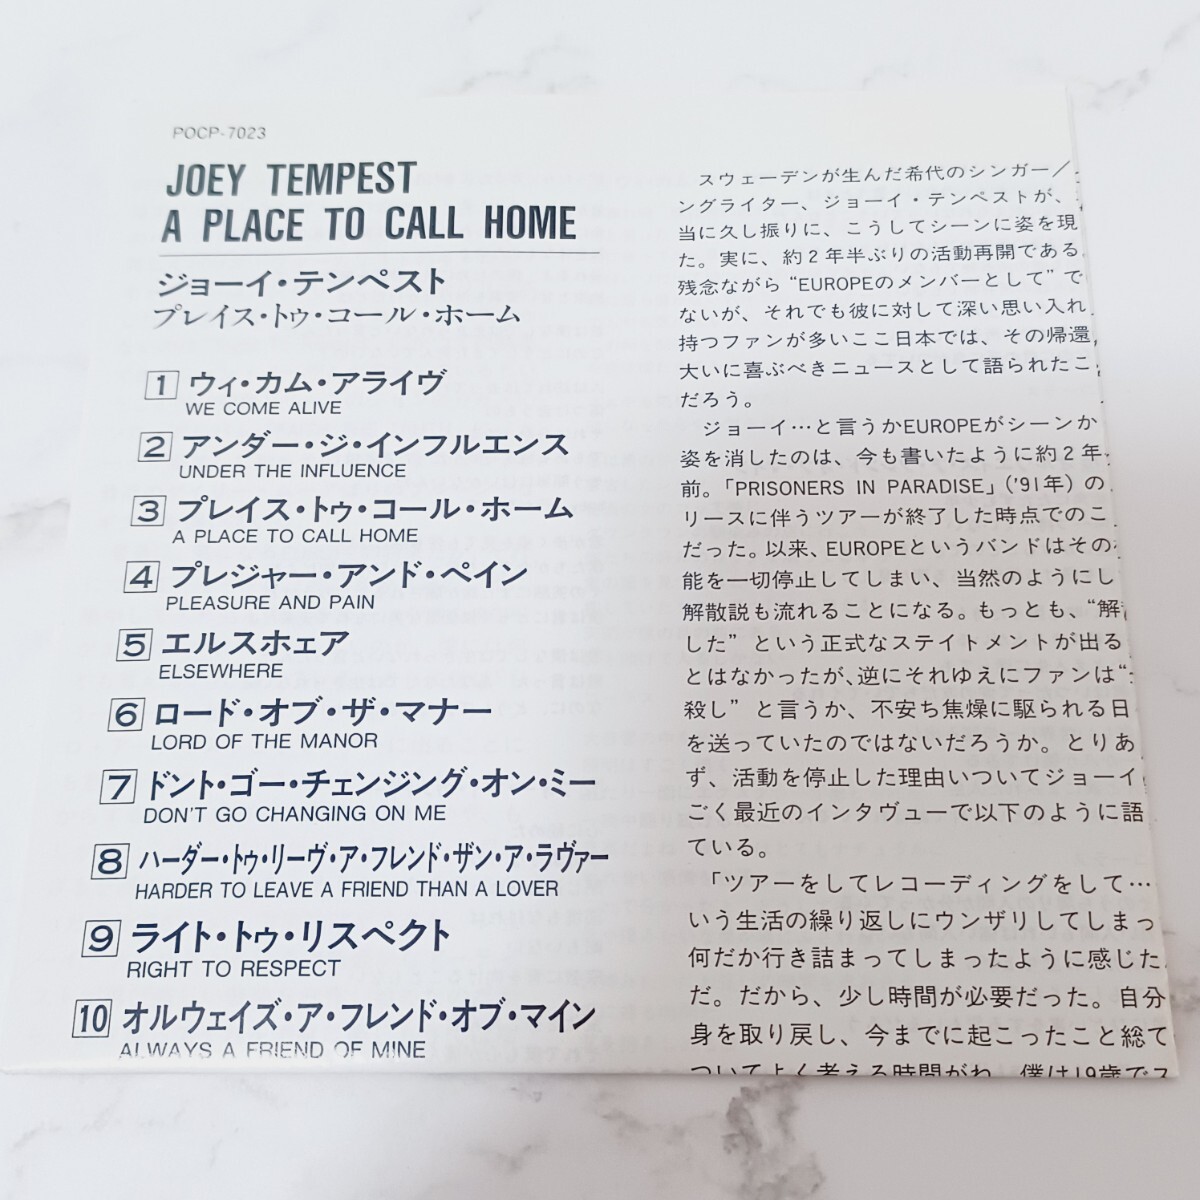 POCP-7023
JOEY TEMPEST
A PLACE TO CALL HOME
ジョーイ・テンペスト
プレイス・トゥ・コール・ホーム
1 ウィ・カム・アライヴ
WE COME ALIVE
2 アンダー・ジ・インフルエンス
UNDER THE INFLUENCE
3 プレイス・トゥ・コール・ホーム
A PLACE TO CALL HOME
4 プレジャー・アンド・ペイン
PLEASURE AND PAIN
5 エルスホェア
ELSEWHERE
6 ロード・オブ・ザ・マナー
LORD OF THE MANOR
7 ドント・ゴー・チェンジング・オン・ミー
DON'T GO CHANGING ON ME
8 ハーダー・トゥ・リーヴ・ア・フレンド・ザン・ア・ラヴァー
HARDER TO LEAVE A FRIEND THAN A LOVER
9 ライト・トゥ・リスペクト
RIGHT TO RESPECT
10 オルウェイズ・ア・フレンド・オブ・マイン
ALWAYS A FRIEND OF MINE
スウェーデンが生んだ希代のシンガー／
ングライター、ジョーイ・テンペストが、
当に久し振りに、こうしてシーンに姿を現
た。実に、約2年半ぶりの活動再開である
残念ながら“EUROPEのメンバーとして”で
ないが、それでも彼に対して深い思い入れ
持つファンが多いここ日本では、その帰還
大いに喜ぶべきニュースとして語られたこ
だろう。
ジョーイ…と言うかEUROPEがシーンか
姿を消したのは、今も書いたように約2年
前。「PRISONERS IN PARADISE」('91年) の
リースに伴うツアーが終了した時点でのこ
だった。以来、EUROPEというバンドはその
能を一切停止してしまい、当然のようにし
解散説も流れることになる。もっとも、“解
した” という正式なステイトメントが出る
とはなかったが、逆にそれゆえにファンは“
殺し” と言うか、不安ち焦燥に駆られる日
を送っていたのではないだろうか。とりあ
ず、活動を停止した理由いついてジョーイ
ごく最近のインタヴューで以下のように語
ている。
「ツアーをしてレコーディングをして…
いう生活の繰り返しにウンザリしてしまっ
何だか行き詰まってしまったように感じた
だ。だから、少し時間が必要だった。自分
身を取り戻し、今までに起こったこと総て
ついてよく考える時間がね。僕は19歳でス